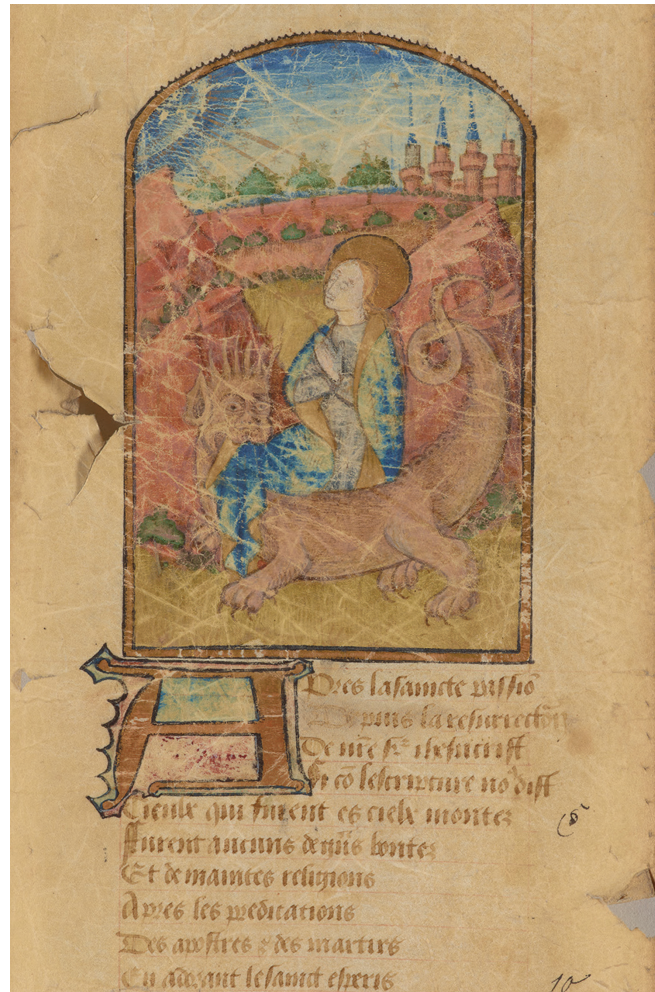 Apres la saincte passiō
De puis la resurrectōn
De nr̄e sr̄ ihesucrist
Si cō lescripture no9 dist
Cieulx qui furent es cielx montez
Furent aucuns de g̃ns bontez
Et de maintes religions
Apres les predications
Des apostres & des martirs
En aorant le sainct esperis
10